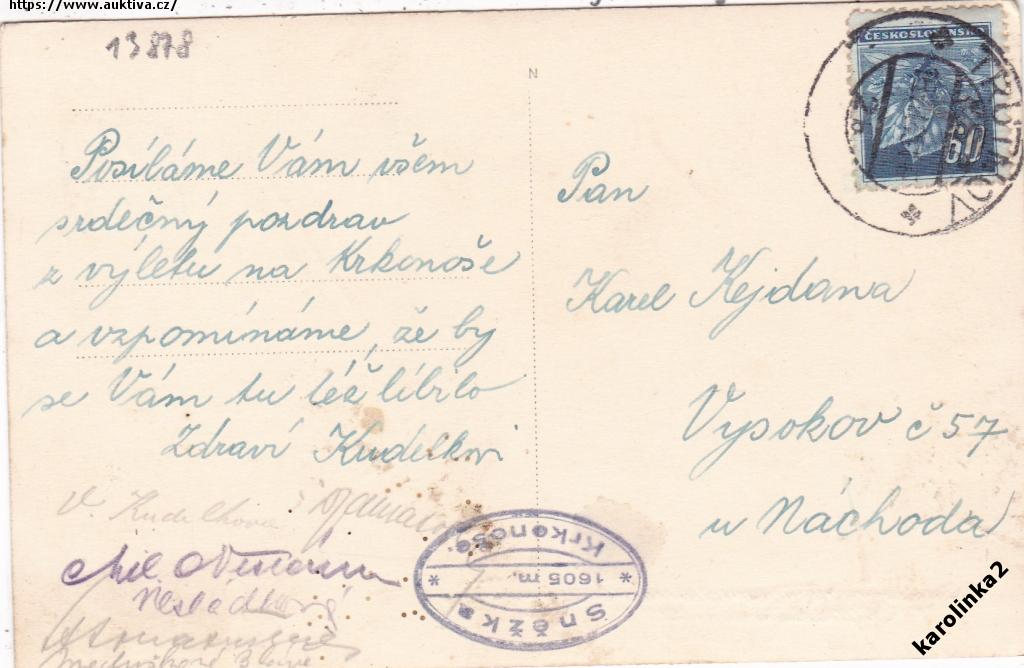 https://www.auktiva.cz/
13878
N
Posíláme Vám všem
srdečný pozdrav
z výletu na Krkonoše
a vzpomínáme, že by
se Vám tu též líbilo
Zdraví Kudelkovi
V. Kudelková
Mil.
ČESKOSLOVENSKO
60
TRUTNOV
Pan
Karel Kejdana
Vysokov č 57
u Náchoda
Sněžka
* 1605 m. *
Krkonoše.
karolinka2